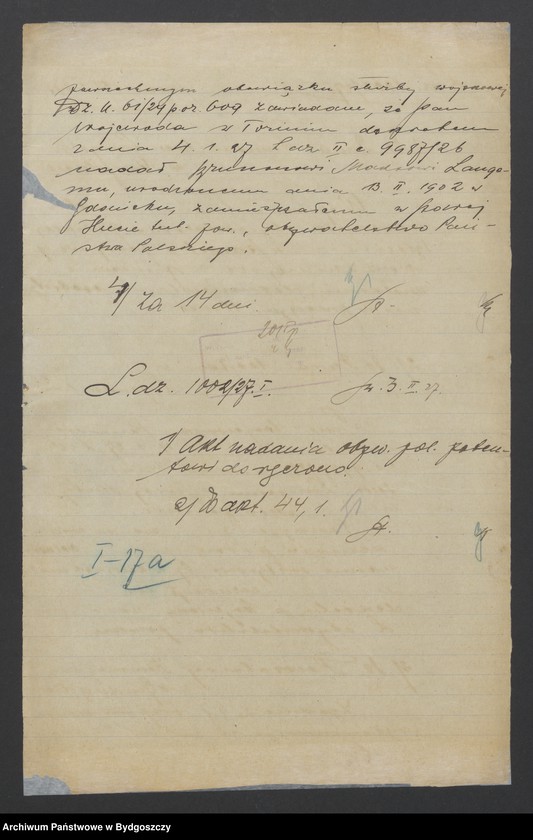 powszechnym obowiązku służby wojskowej
Dz. U. 61/24 poz. 609 zawiadam, że Pan
Wojewoda w Toruniu
z dnia 4. 1. 27 L dz. II c. 9987/26
nadał Brunonowi Lango-
mu, urodzonemu dnia 13. II. 1902 w
Gdańsku, zamieszkałemu w
Hucie tut. pow., obywatelstwo Pań-
stwa Polskiego.
4/ Za 14 dni.
L. dz. 1002/27. I. 3. II. 27.
1/ Akt nadania obyw. pol. peten-
towi doręczono.
2/ akt. 44, 1.
I-17a
Archiwum Państwowe w Bydgoszczy